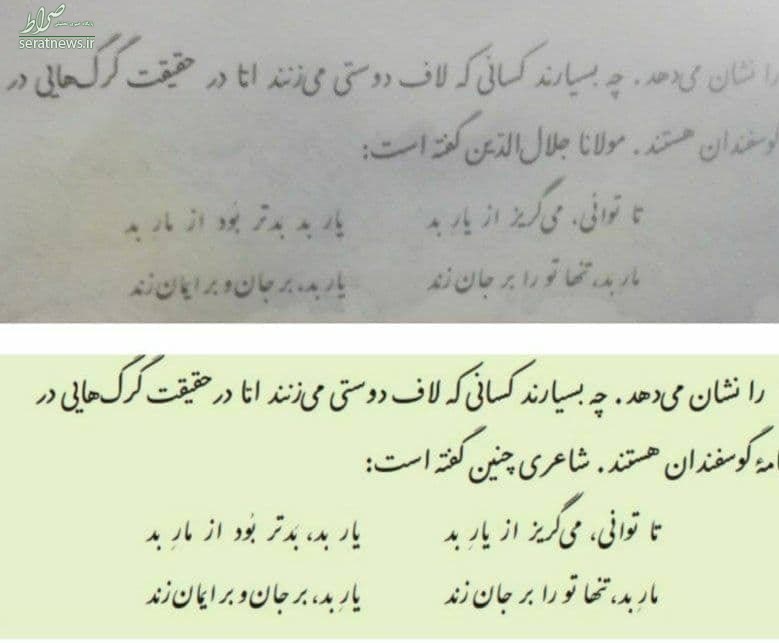 صراط
seratnews.ir
را نشان می‌دهد. چه بسیارند کسانی که لاف دوستی می‌زنند امّا در حقیقت گرگ‌هایی در
گوسفندان هستند. مولانا جلال‌الدّین گفته است:
تا توانی، می‌گریز از یار بد یار بد بدتر بُوَد از مار بد
مار بد، تنها تو را بر جان زند یار بد، بر جان و بر ایمان زند
را نشان می‌دهد. چه بسیارند کسانی که لاف دوستی می‌زنند امّا در حقیقت گرگ‌هایی در
امهٔ گوسفندان هستند. شاعری چنین گفته است:
تا توانی، می‌گریز از یارِ بد یار بد، بَدتر بُوَد از مارِ بد
مارِ بد، تنها تو را بر جان زند یارِ بد، بر جان و بر ایمان زند